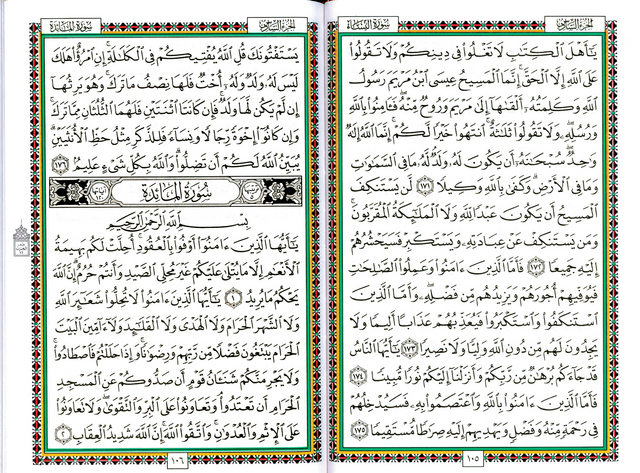 الجزء السادس
سورة النساء
يَٰٓأَهۡلَ ٱلۡكِتَٰبِ لَا تَغۡلُواْ فِي دِينِكُمۡ وَلَا تَقُولُواْ
عَلَى ٱللَّهِ إِلَّا ٱلۡحَقَّۚ إِنَّمَا ٱلۡمَسِيحُ عِيسَى ٱبۡنُ مَرۡيَمَ رَسُولُ
ٱللَّهِ وَكَلِمَتُهُۥٓ أَلۡقَىٰهَآ إِلَىٰ مَرۡيَمَ وَرُوحٞ مِّنۡهُۖ فَـَٔامِنُواْ بِٱللَّهِ
وَرُسُلِهِۦۖ وَلَا تَقُولُواْ ثَلَٰثَةٌۚ ٱنتَهُواْ خَيۡرٗا لَّكُمۡۚ إِنَّمَا ٱللَّهُ إِلَٰهٞ
وَٰحِدٞۖ سُبۡحَٰنَهُۥٓ أَن يَكُونَ لَهُۥ وَلَدٞۘ لَّهُۥ مَا فِي ٱلسَّمَٰوَٰتِ
وَمَا فِي ٱلۡأَرۡضِۗ وَكَفَىٰ بِٱللَّهِ وَكِيلٗا ١٧١ لَّن يَسۡتَنكِفَ
ٱلۡمَسِيحُ أَن يَكُونَ عَبۡدٗا لِّلَّهِ وَلَا ٱلۡمَلَٰٓئِكَةُ ٱلۡمُقَرَّبُونَۚ
وَمَن يَسۡتَنكِفۡ عَنۡ عِبَادَتِهِۦ وَيَسۡتَكۡبِرۡ فَسَيَحۡشُرُهُمۡ
إِلَيۡهِ جَمِيعٗا ١٧٢ فَأَمَّا ٱلَّذِينَ ءَامَنُواْ وَعَمِلُواْ ٱلصَّٰلِحَٰتِ
فَيُوَفِّيهِمۡ أُجُورَهُمۡ وَيَزِيدُهُم مِّن فَضۡلِهِۦۖ وَأَمَّا ٱلَّذِينَ
ٱسۡتَنكَفُواْ وَٱسۡتَكۡبَرُواْ فَيُعَذِّبُهُمۡ عَذَابًا أَلِيمٗا وَلَا
يَجِدُونَ لَهُم مِّن دُونِ ٱللَّهِ وَلِيّٗا وَلَا نَصِيرٗا ١٧٣ يَٰٓأَيُّهَا ٱلنَّاسُ
قَدۡ جَآءَكُم بُرۡهَٰنٞ مِّن رَّبِّكُمۡ وَأَنزَلۡنَآ إِلَيۡكُمۡ نُورٗا مُّبِينٗا ١٧٤
فَأَمَّا ٱلَّذِينَ ءَامَنُواْ بِٱللَّهِ وَٱعۡتَصَمُواْ بِهِۦ فَسَيُدۡخِلُهُمۡ
فِي رَحۡمَةٖ مِّنۡهُ وَفَضۡلٖ وَيَهۡدِيهِمۡ إِلَيۡهِ صِرَٰطٗا مُّسۡتَقِيمٗا ١٧٥
١٠٥
الجزء السادس
سورة المائدة
يَسۡتَفۡتُونَكَ قُلِ ٱللَّهُ يُفۡتِيكُمۡ فِي ٱلۡكَلَٰلَةِۚ إِنِ ٱمۡرُؤٌاْ هَلَكَ
لَيۡسَ لَهُۥ وَلَدٞ وَلَهُۥٓ أُخۡتٞ فَلَهَا نِصۡفُ مَا تَرَكَۚ وَهُوَ يَرِثُهَآ
إِن لَّمۡ يَكُن لَّهَا وَلَدٞۚ فَإِن كَانَتَا ٱثۡنَتَيۡنِ فَلَهُمَا ٱلثُّلُثَانِ مِمَّا تَرَكَۚ
وَإِن كَانُوٓاْ إِخۡوَةٗ رِّجَالٗا وَنِسَآءٗ فَلِلذَّكَرِ مِثۡلُ حَظِّ ٱلۡأُنثَيَيۡنِۗ
يُبَيِّنُ ٱللَّهُ لَكُمۡ أَن تَضِلُّواْۗ وَٱللَّهُ بِكُلِّ شَيۡءٍ عَلِيمُۢ ١٧٦
سورة المائدة
بِسۡمِ ٱللَّهِ ٱلرَّحۡمَٰنِ ٱلرَّحِيمِ
يَٰٓأَيُّهَا ٱلَّذِينَ ءَامَنُوٓاْ أَوۡفُواْ بِٱلۡعُقُودِۚ أُحِلَّتۡ لَكُم بَهِيمَةُ
ٱلۡأَنۡعَٰمِ إِلَّا مَا يُتۡلَىٰ عَلَيۡكُمۡ غَيۡرَ مُحِلِّي ٱلصَّيۡدِ وَأَنتُمۡ حُرُمٌۗ إِنَّ ٱللَّهَ
يَحۡكُمُ مَا يُرِيدُ ١ يَٰٓأَيُّهَا ٱلَّذِينَ ءَامَنُواْ لَا تُحِلُّواْ شَعَٰٓئِرَ ٱللَّهِ
وَلَا ٱلشَّهۡرَ ٱلۡحَرَامَ وَلَا ٱلۡهَدۡيَ وَلَا ٱلۡقَلَٰٓئِدَ وَلَآ ءَآمِّينَ ٱلۡبَيۡتَ
ٱلۡحَرَامَ يَبۡتَغُونَ فَضۡلٗا مِّن رَّبِّهِمۡ وَرِضۡوَٰنٗاۚ وَإِذَا حَلَلۡتُمۡ فَٱصۡطَادُواْۚ
وَلَا يَجۡرِمَنَّكُمۡ شَنَـَٔانُ قَوۡمٍ أَن صَدُّوكُمۡ عَنِ ٱلۡمَسۡجِدِ
ٱلۡحَرَامِ أَن تَعۡتَدُواْۘ وَتَعَاوَنُواْ عَلَى ٱلۡبِرِّ وَٱلتَّقۡوَىٰۖ وَلَا تَعَاوَنُواْ
عَلَى ٱلۡإِثۡمِ وَٱلۡعُدۡوَٰنِۚ وَٱتَّقُواْ ٱللَّهَۖ إِنَّ ٱللَّهَ شَدِيدُ ٱلۡعِقَابِ ٢
١٠٦